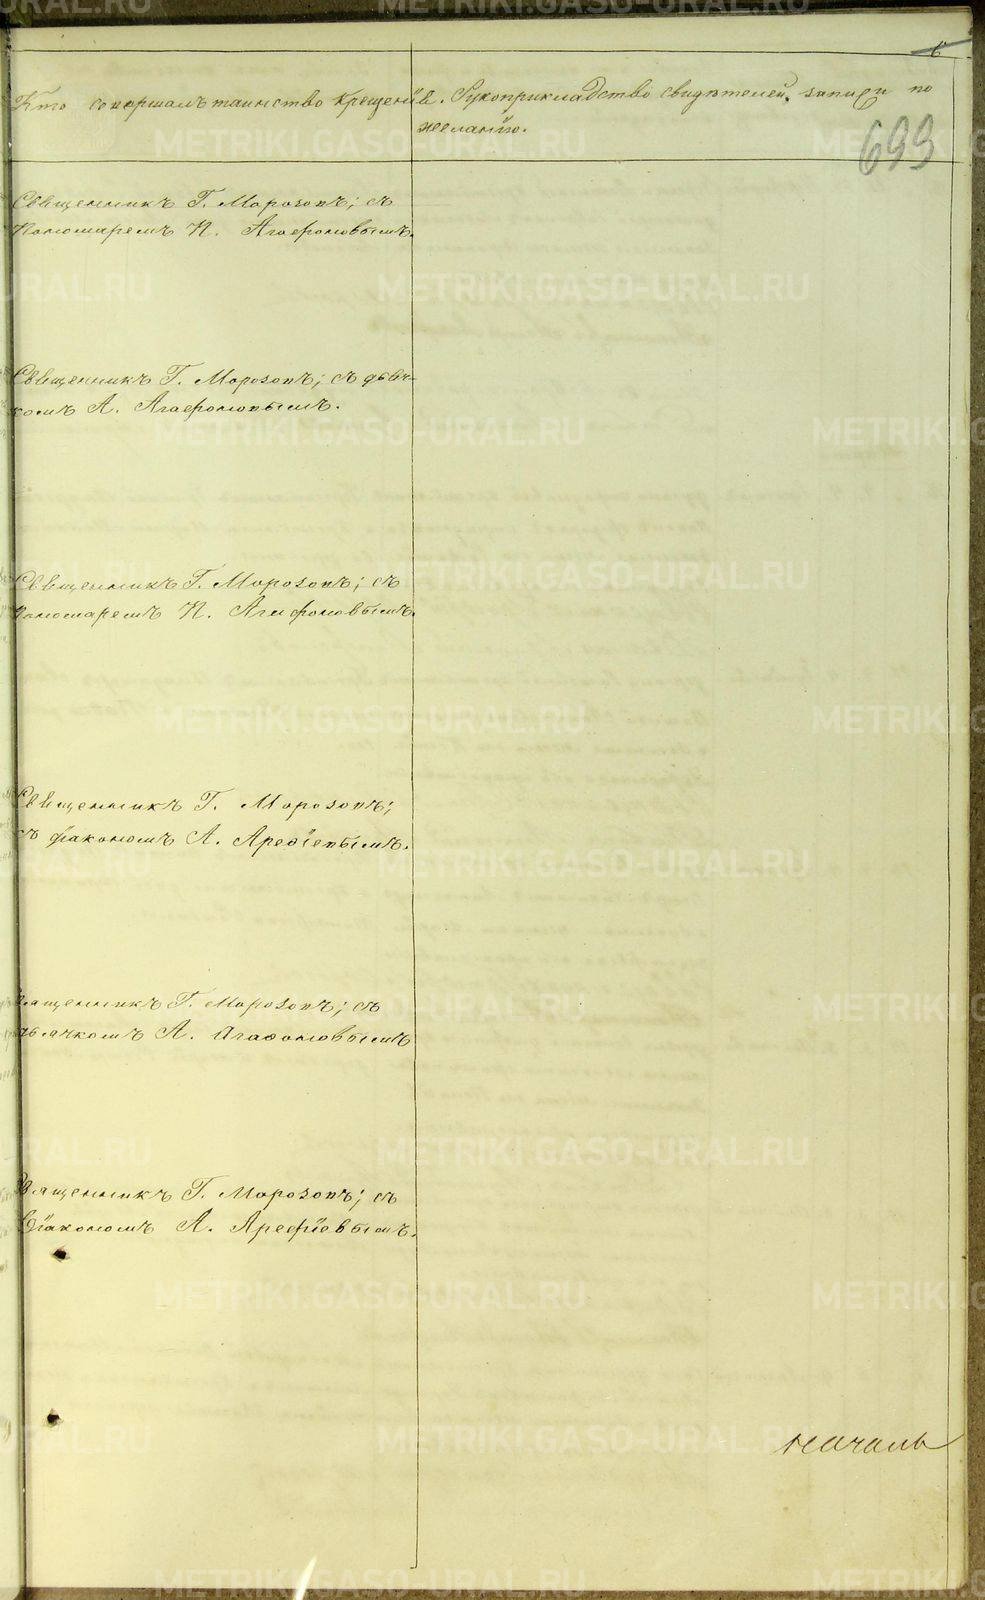 6
Кто совершалъ таинство крещенія.
Рукоприкладство свидѣтелей записи по
желанію.
699
Священникъ Г. Морозовъ; съ
Пономаремъ П. Агафоновымъ.
Священникъ Г. Морозовъ; съ дьяч-
комъ А. Агафоновымъ.
Священникъ Г. Морозовъ; съ
пономаремъ П. Агафоновымъ.
Священникъ Г. Морозовъ;
съ діакономъ А. Арефіевымъ.
Священникъ Г. Морозовъ; съ
дьячкомъ А. Агафоновымъ
Священникъ Г. Морозовъ; съ
Діакономъ А. Арефіевымъ.
METRIKI.GASO-URAL.RU